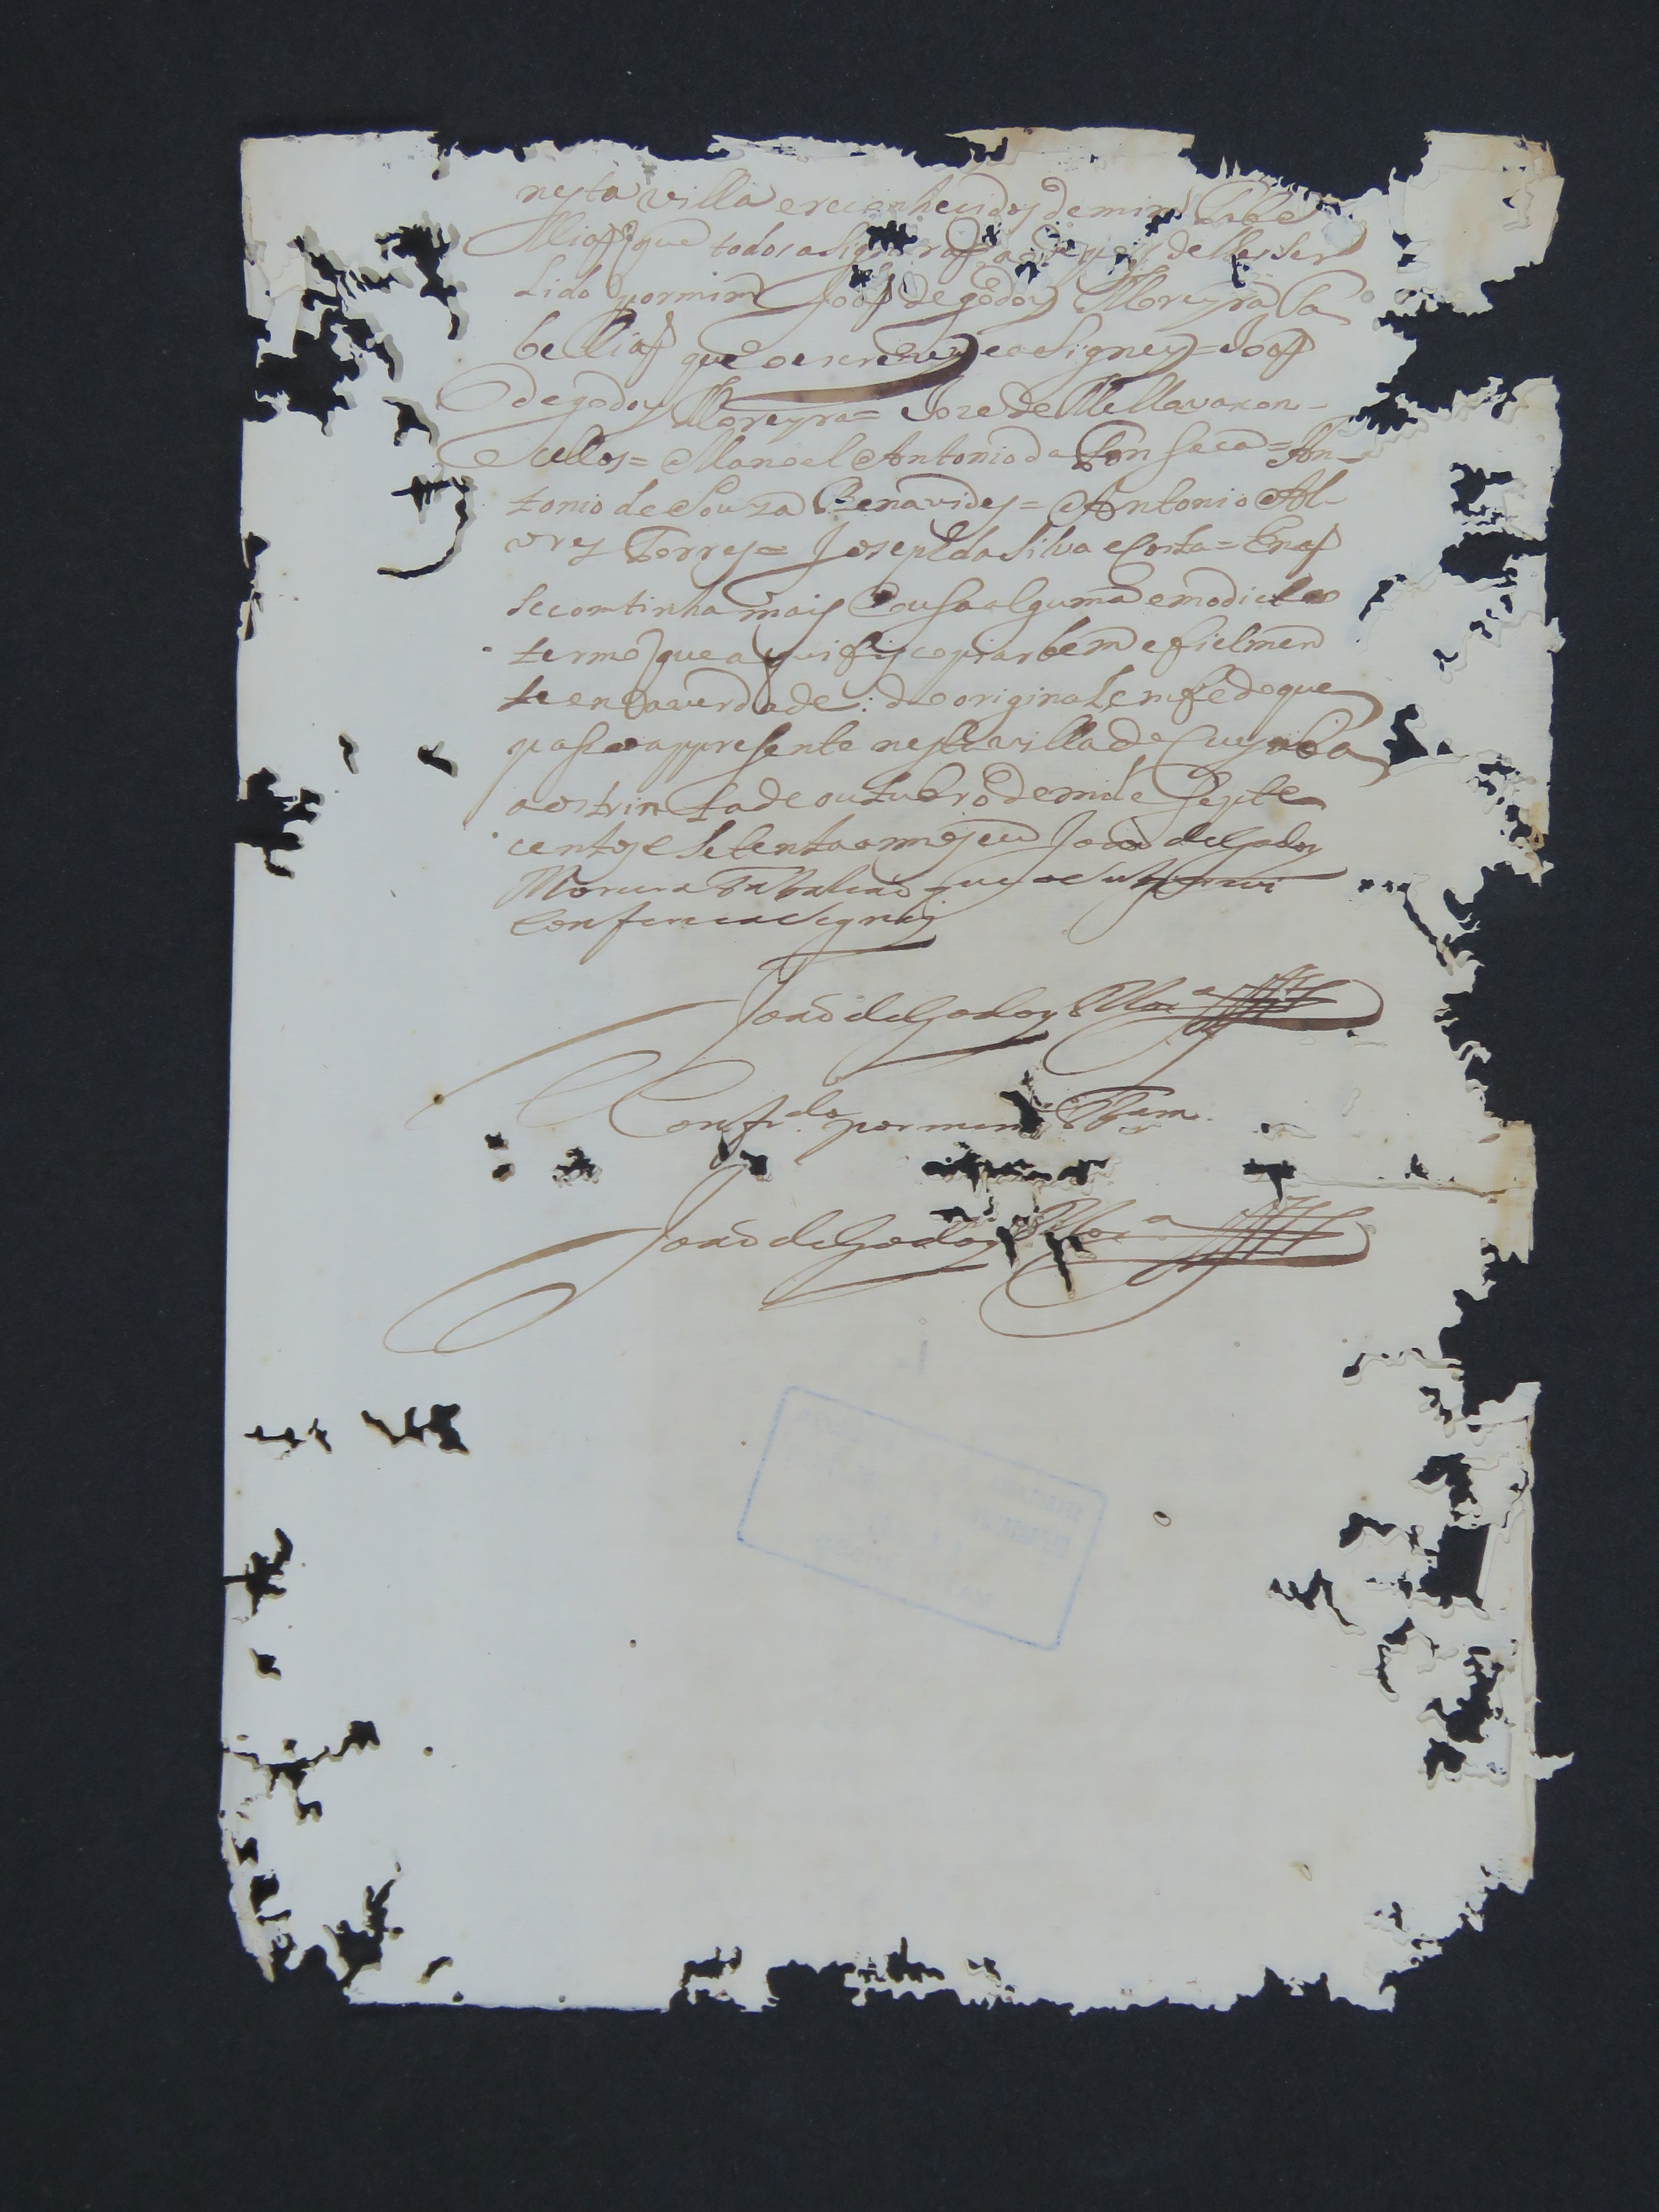 nesta villa e reconhecidos de mim Tabe
lliaõ que todos asignaraõ depois delles ser
Lido por mim Joaõ de godoy Moreyra Ta
belliaõ que o escrevy e asigney = Joaõ
de godoy Moreyra = Joze de Mella vascon-
cellos = Manoel Antonio da Fonseca = An-
tonio de Souza Benavides = Antonio Al-
vres Torres = Joseph da Silva Costa = E naõ
se comtinha mais Cousa alguma em o dicto
termo que aqui fis copiar bem e fielmen
te en a verdade: do original, em fé do que
pasei a appresente nesta villa de Cuyaba
aos trinta de outubro de mil e Septe
centos e Setenta annos eu Joaõ de Godoy
Moreira Taballiaõ que o
Conferi e asigney
Joaõ de Godoy Mor.ª
Confr.do por mim Tbam.
Joaõ de Godoy Mor.ª